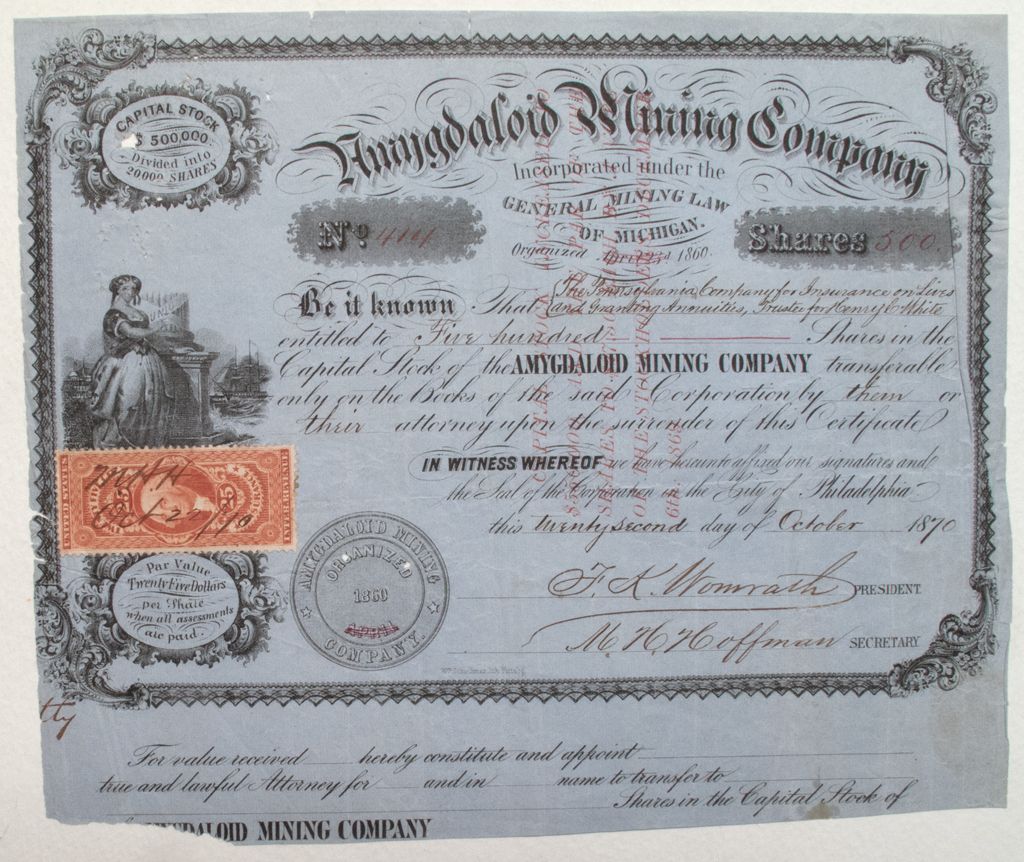 CAPITAL STOCK
$ 500,000
Divided into
20000 SHARES
Amygdaloid Mining Company
Incorporated under the
GENERAL MINING LAW
OF MICHIGAN.
Organized April 23d 1860.
No 414
Shares 500.
Be it known That The Pennsylvania Company for Insurance on Lives
and Granting Annuities, Trustee for Henry C White
entitled to Five hundred Shares in the
Capital Stock of the AMYGDALOID MINING COMPANY transferable
only on the Books of the said Corporation by them or
their attorney upon the surrender of this Certificate
IN WITNESS WHEREOF we have hereunto affixed our signatures and
the Seal of the Corporation in the City of Philadelphia
this twenty second day of October 1870
F. K. Womrath PRESIDENT
M. H. Hoffman SECRETARY
MHH
Oct 22/70
25
25
Par Value
Twenty Five Dollars
per Share
when all assessments
are paid.
AMYGDALOID MINING
ORGANIZED
1860
COMPANY.
For value received hereby constitute and appoint
true and lawful Attorney for and in name to transfer to
Shares in the Capital Stock of
AMYGDALOID MINING COMPANY